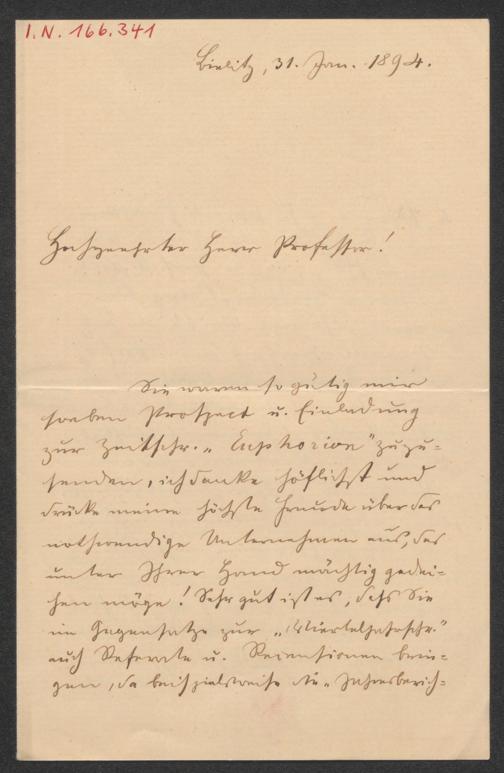 I.N. 166.341
Bielitz, 31. Jan. 1894.
Hochgeehrter Herr Professor!
Sie waren so gütig mir
soeben Prospect u. Einladung
zur Zeitschr. „Euphorion" zuzu=
senden, ich danke höflichst und
drücke meine höchste Freude über das
nothwendige Unternehmen aus, das
unter Ihrer Hand mächtig gedei=
hen möge! Sehr gut ist es, dass Sie
im Gegensatze zur „Vierteljahrschr."
auch Referate u. Recensionen brin=
gen, da beispielsweise die „Jahresberich=